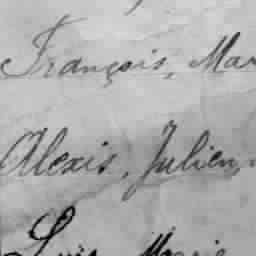 François, Mar
Alexis, Julien,
Louis Marie